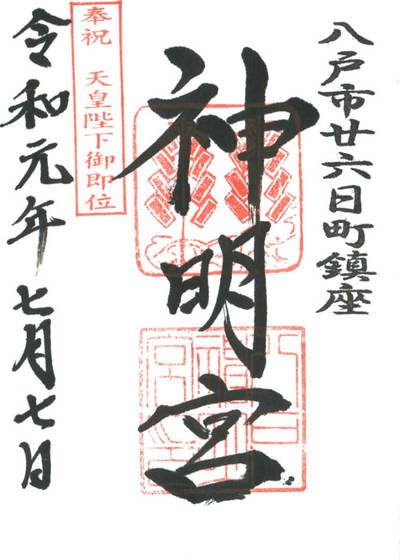 八戸市廿六日町鎮座
神明宮
奉祝 天皇陛下御即位
令和元年七月七日